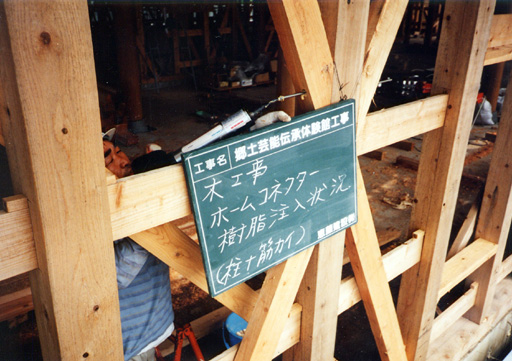 工事名 郷土芸能伝承体験館工事
木工事
ホームコネクター
樹脂注入状況
(柱ナ筋カイ)